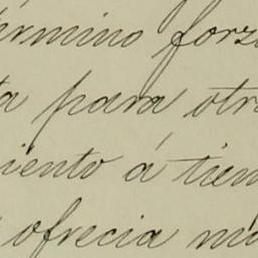 érmino forz
ta para otr
iento á tiem
ofrecia m